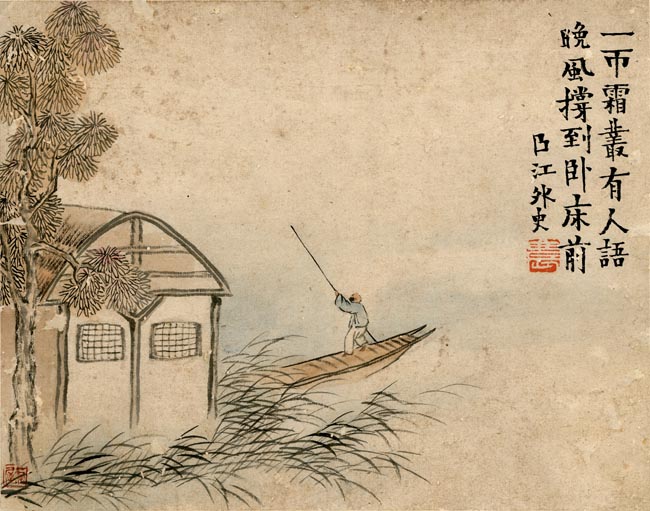 一帀霜叢有人語
晚風撐到卧床前
江外史